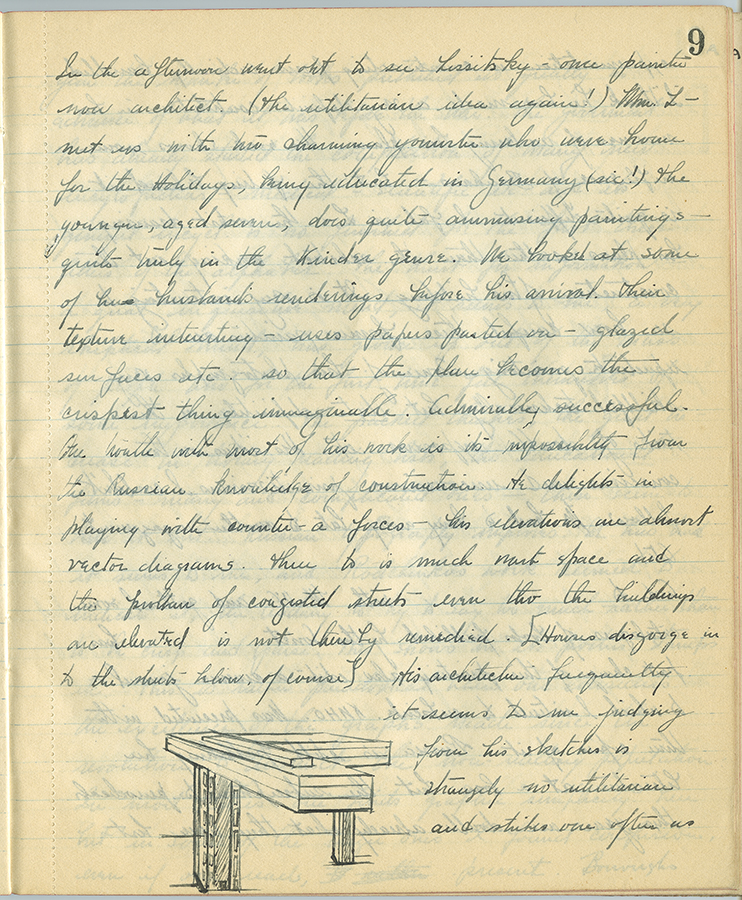 9
In the afternoon went out to see Lissitsky - once painter
now architect. (the utilitarian idea again!) Mme. L-
met us with two charming youngsters who were home
for the Holidays, being educated in Germany (sic!) The
younger, aged seven, does quite ammusing paintings -
quite truly in the Kinder genre. We looked at some
of her husband's renderings before his arrival. Their
texture interesting - uses papers pasted on - glazed
surfaces etc. so that the plan becomes the
crispest thing immaginable. Admirably successful.
The trouble with most of his work is its impossibility from
the Russian knowledge of construction. He delights in
playing with counter-a forces - his elevations are almost
vector diagrams. There to is much wast space and
the problem of congested streets even tho the buildings
are elevated is not thereby remedied. [Houses disgorge in
to the streets below, of course] His architecture frequently
it seems to me judging
from his sketches is
strangely no utilitarian
and strikes one often as